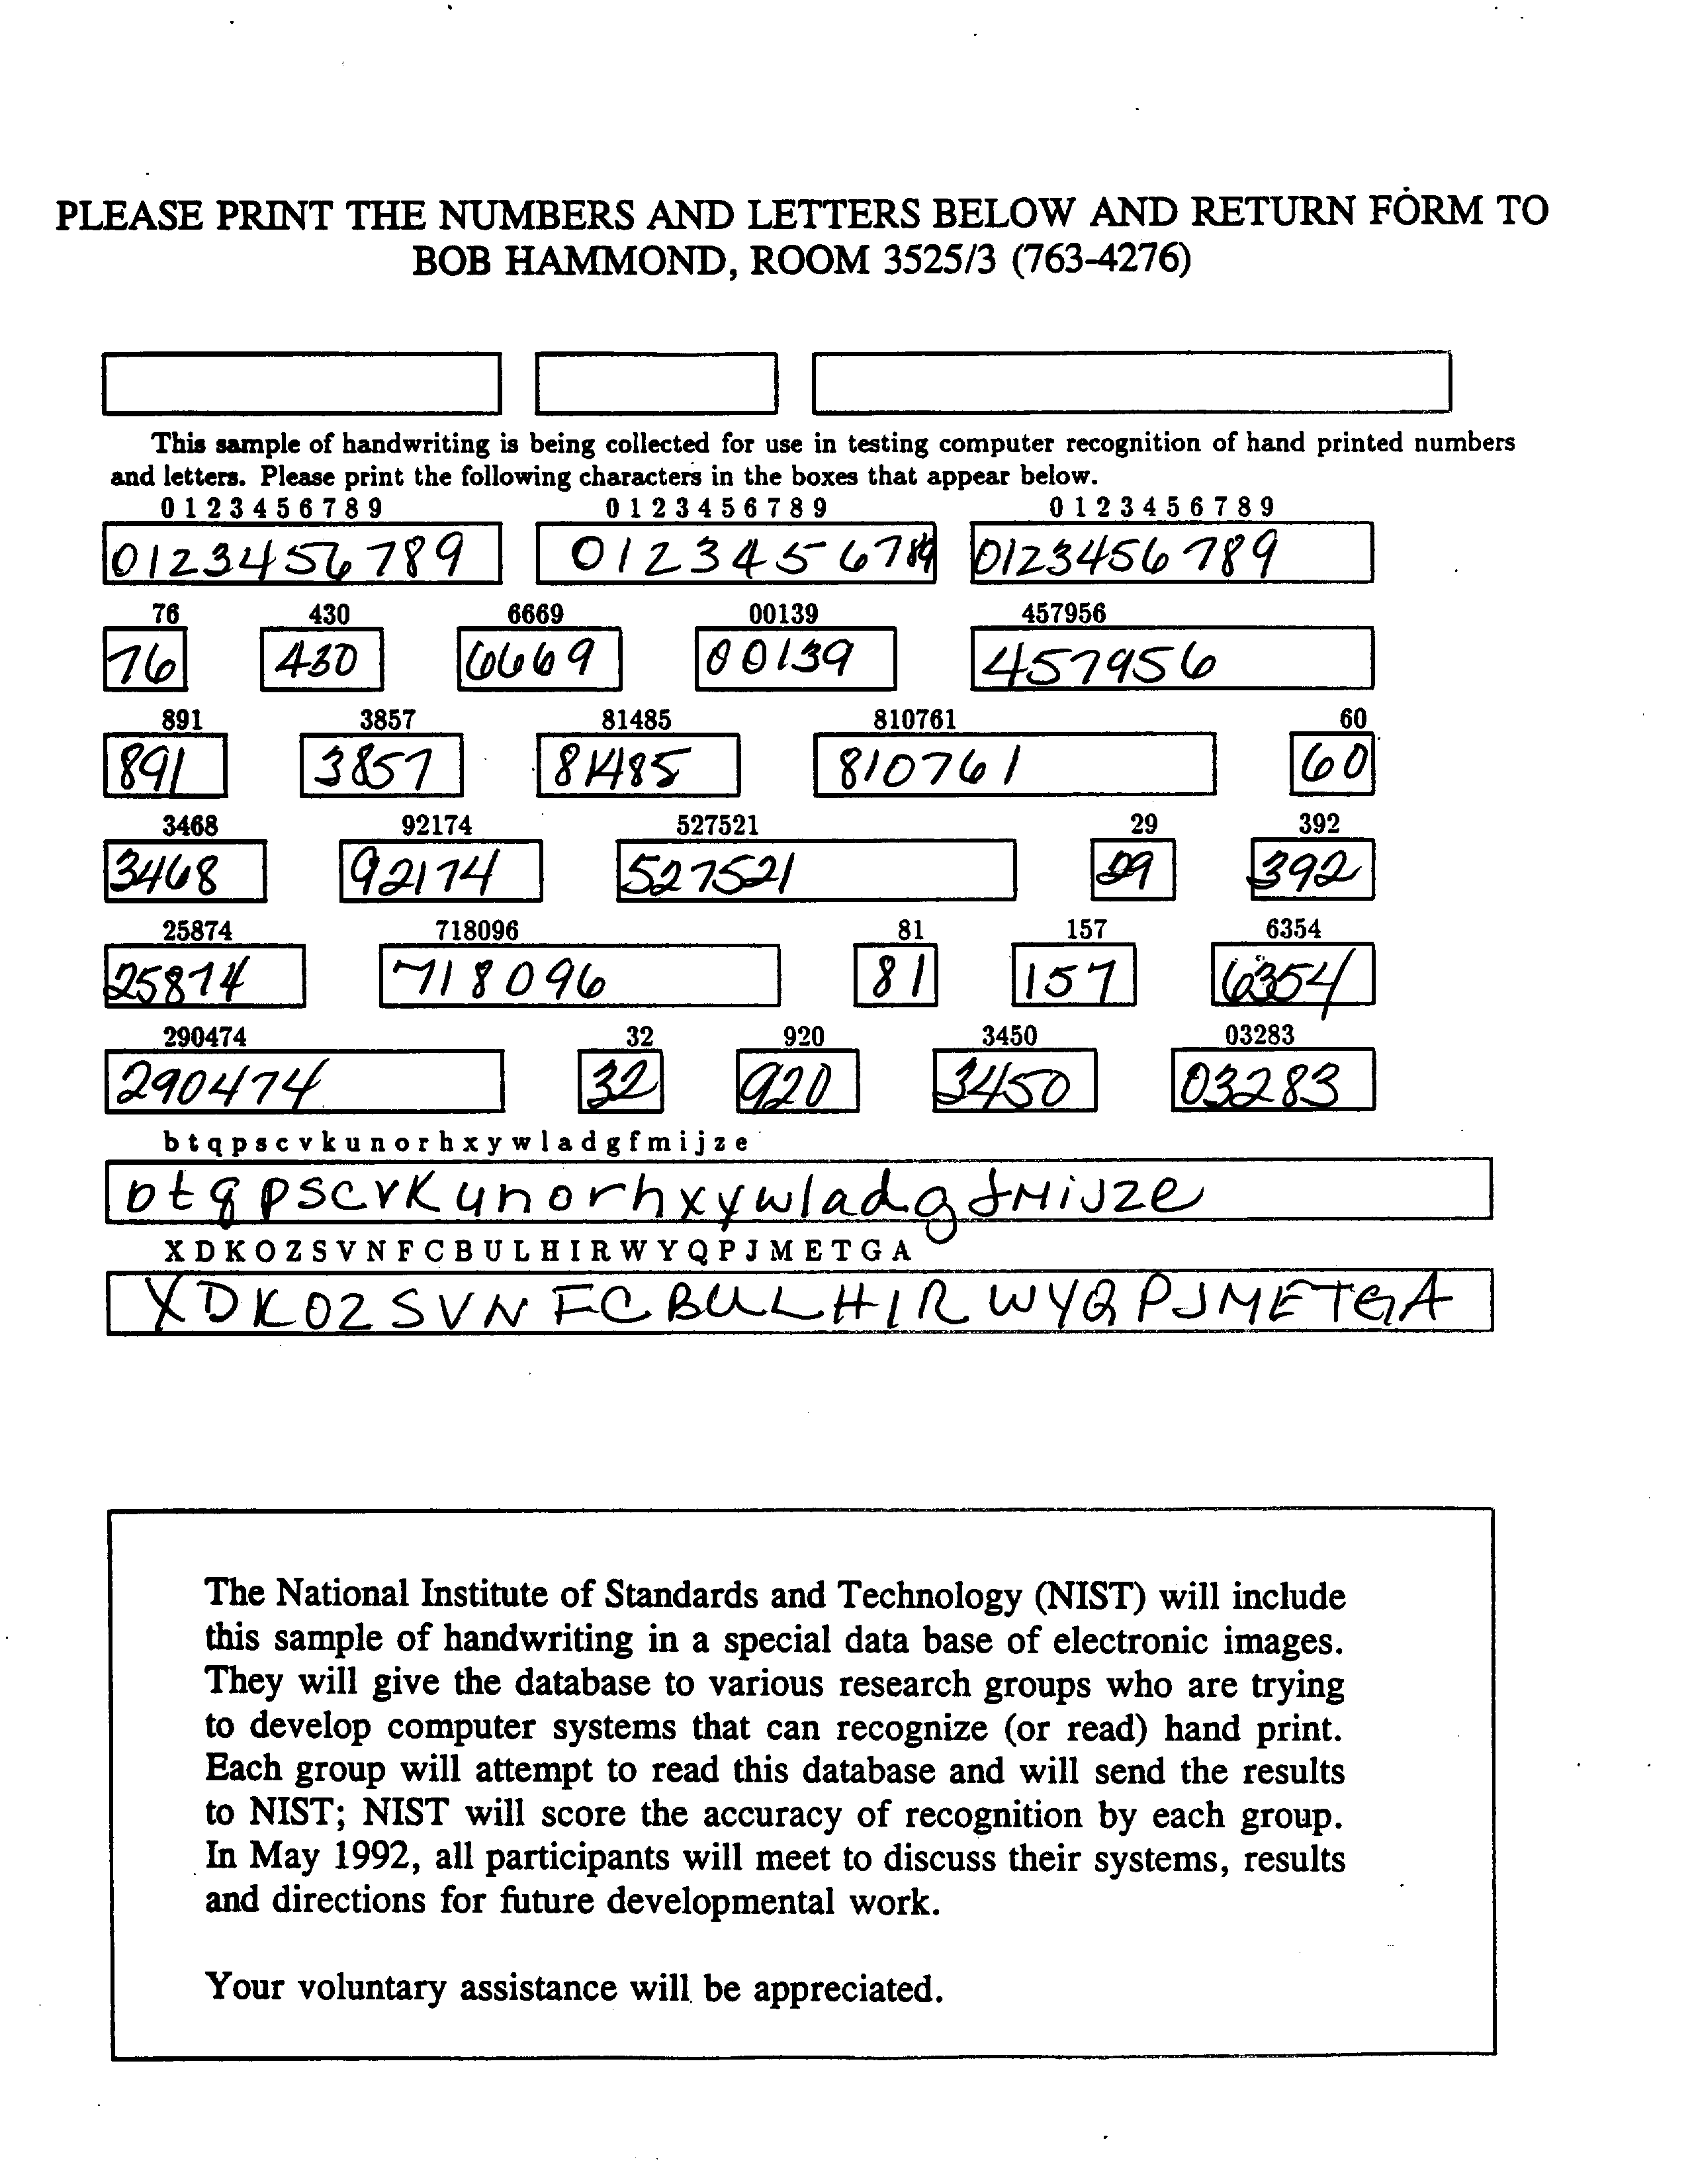 PLEASE PRINT THE NUMBERS AND LETTERS BELOW AND RETURN FORM TO
BOB HAMMOND, ROOM 3525/3 (763-4276)
This sample of handwriting is being collected for use in testing computer recognition of hand printed numbers
and letters. Please print the following characters in the boxes that appear below.
0 1 2 3 4 5 6 7 8 9 0 1 2 3 4 5 6 7 8 9 0 1 2 3 4 5 6 7 8 9
0123456789 0123456789 0123456789
76 430 6669 00139 457956
76 430 6669 00139 457956
891 3857 81485 810761 60
891 3857 81485 810761 60
3468 92174 527521 29 392
3468 92174 527521 29 392
25874 718096 81 157 6354
25874 718096 81 157 6354
290474 32 920 3450 03283
290474 32 920 3450 03283
b t q p s c v k u n o r h x y w l a d g f m i j z e
btqpscvKunorhxywladgfMiJze
X D K O Z S V N F C B U L H I R W Y Q P J M E T G A
XDKOZSVNFCBULHIRWYQPJMETGA
The National Institute of Standards and Technology (NIST) will include
this sample of handwriting in a special data base of electronic images.
They will give the database to various research groups who are trying
to develop computer systems that can recognize (or read) hand print.
Each group will attempt to read this database and will send the results
to NIST; NIST will score the accuracy of recognition by each group.
In May 1992, all participants will meet to discuss their systems, results
and directions for future developmental work.
Your voluntary assistance will be appreciated.